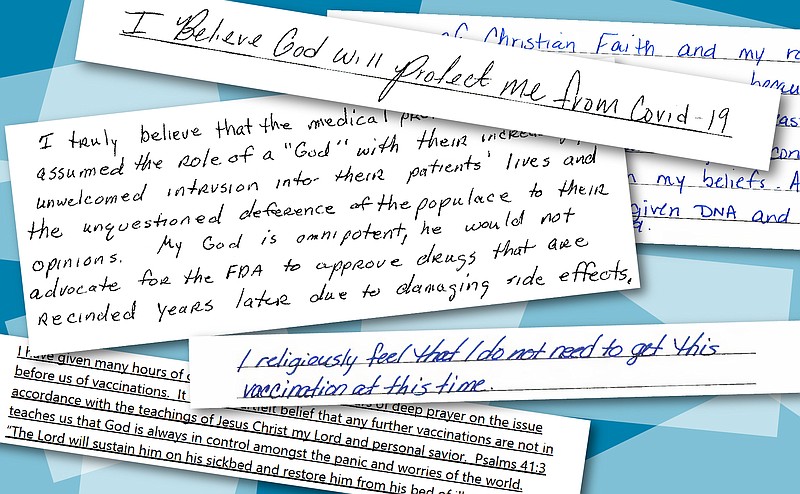 I Believe God will protect me from Covid-19
of Christian Faith and my
my beliefs. A
given DNA and
I truly believe that the medical
assumed the role of a "God" with their
unwelcomed intrusion into their patients' lives and
the unquestioned deference of the populace to their
opinions. My God is omnipotent, he would not
advocate for the FDA to approve drugs that are
recinded years later due to damaging side effects.
I religiously feel that I do not need to get this
vaccination at this time.
I have given many hours of
of deep prayer on the issue
before us of vaccinations. It
belief that any further vaccinations are not in
accordance with the teachings of Jesus Christ my Lord and personal savior. Psalms 41:3
teaches us that God is always in control amongst the panic and worries of the world.
"The Lord will sustain him on his sickbed and restore him from his bed of